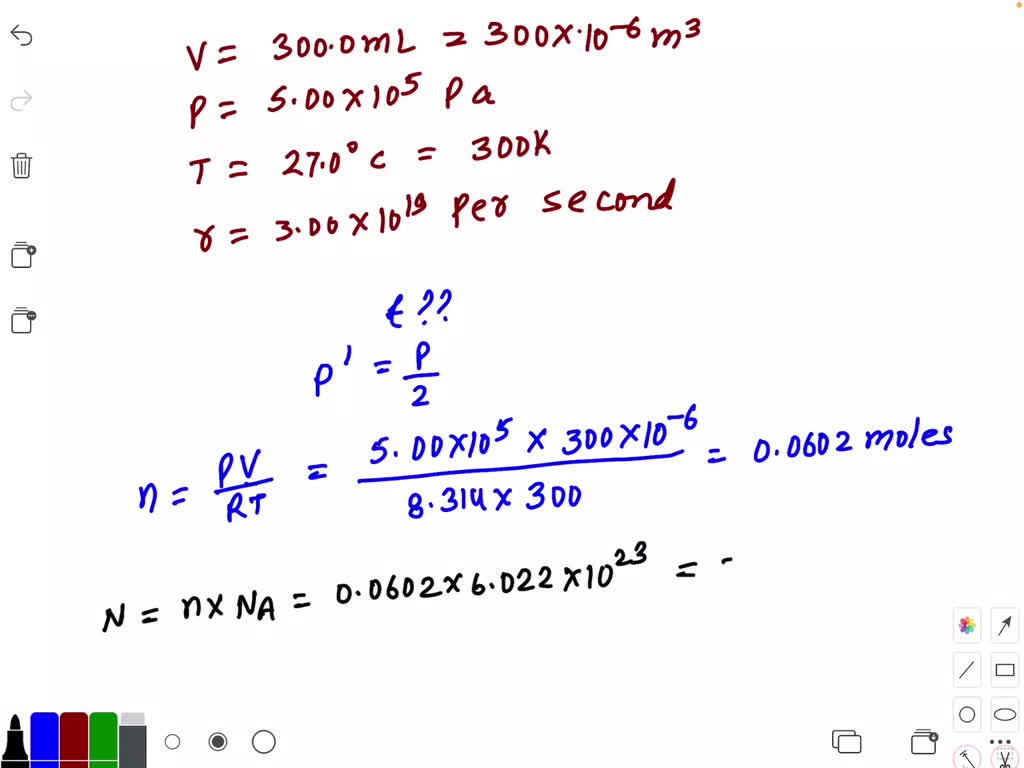 V = 300.0mL = 300×10⁻⁶ m³
P = 5.00×10⁵ Pa
T = 27.0° c = 300K
r = 3.00×10¹⁹ Per second
t ??
P' = P/2
n = PV/RT = 5.00×10⁵ × 300×10⁻⁶ / 8.314 × 300 = 0.0602 moles
N = n× NA = 0.0602×6.022×10²³ = -